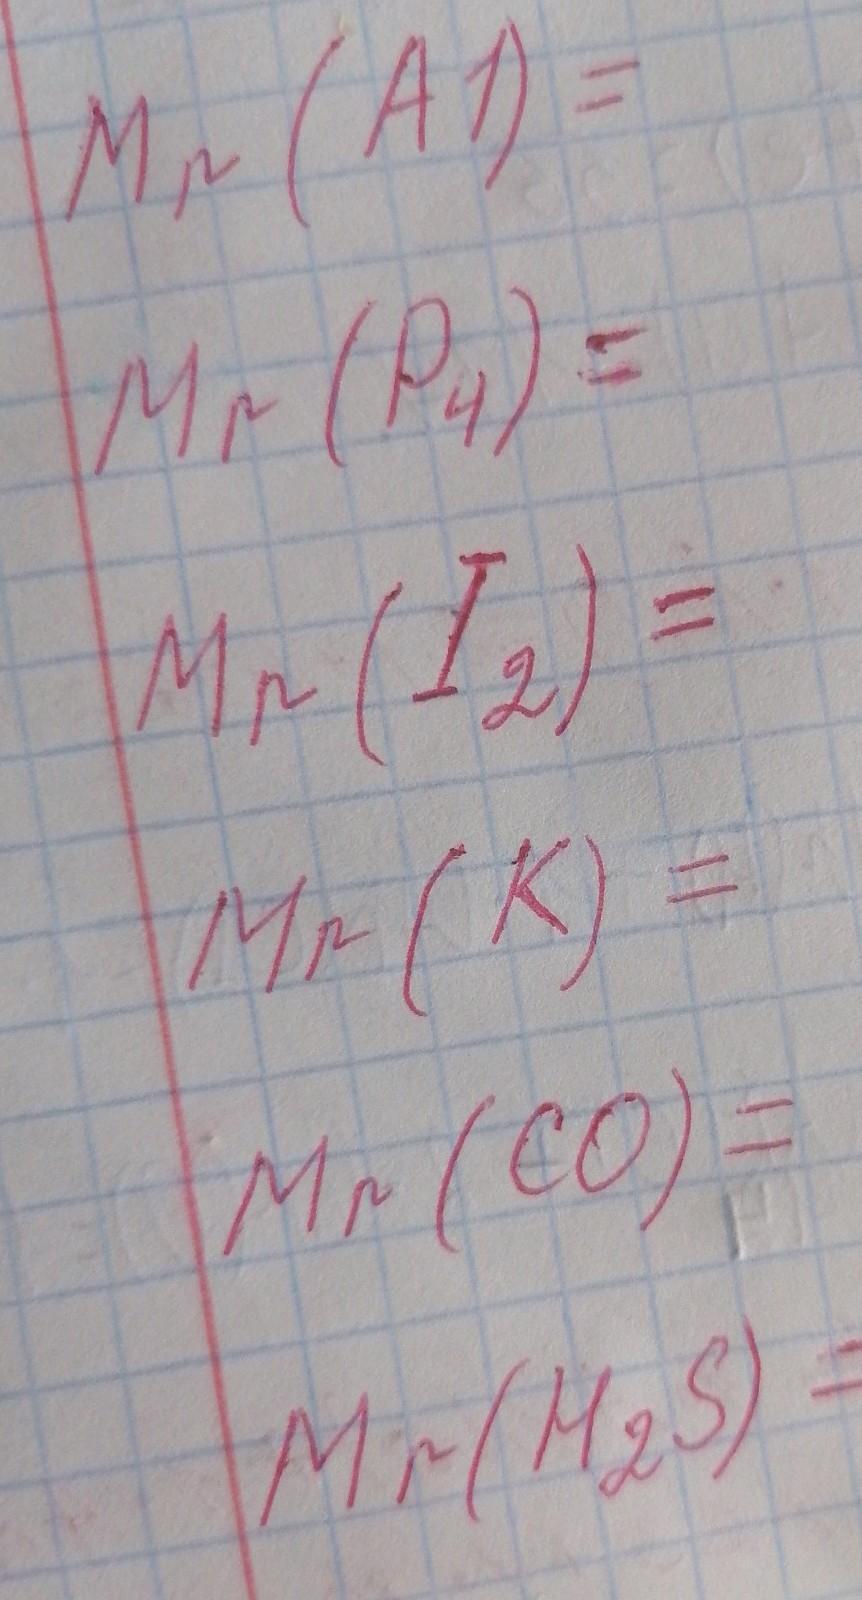 Mr (Al) =
Mr (P₄) =
Mr (I₂) =
Mr (K) =
Mr (CO) =
Mr (H₂S) =